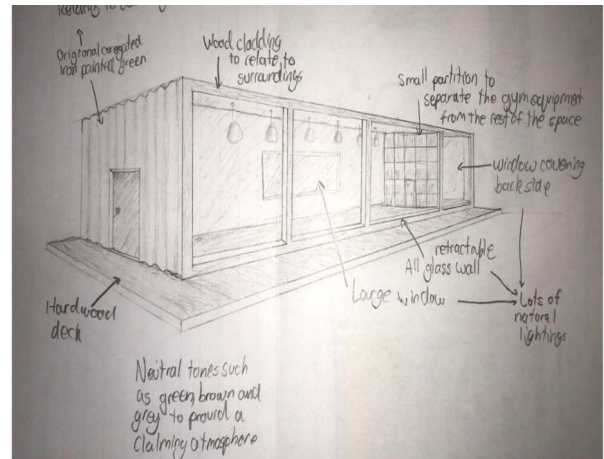 Relating to
Origional coregated
iron painted green
Wood cladding
to relate to
surroundings
Small partition to
separate the gym equipment
from the rest of the space
window covering
back side
retractable
All glass wall
Large window
Lots of
natural
lightings
Hardwood
deck
Neutral tones such
as green, brown and
grey to provid a
clalming atmosphere